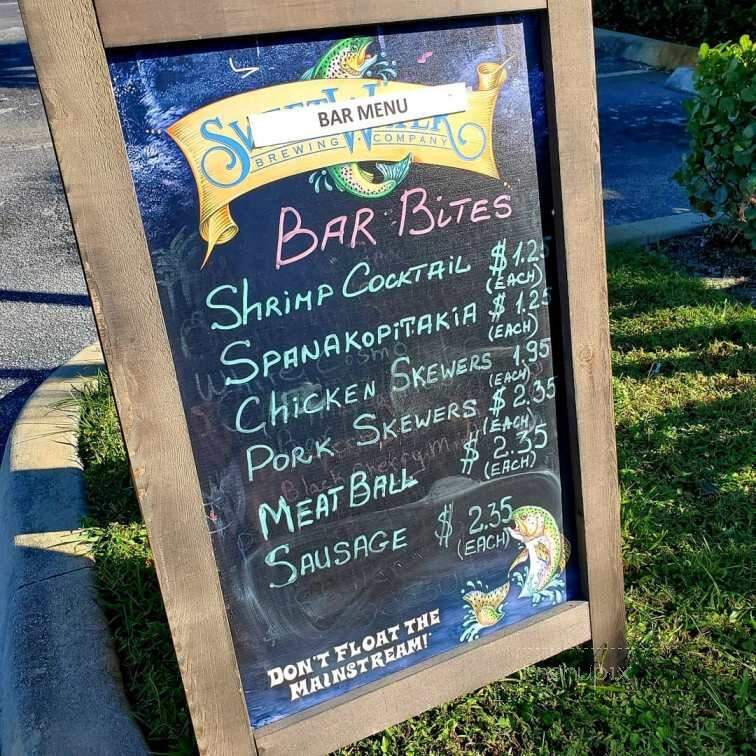 BAR MENU
SWEETWATER
BREWING COMPANY
BAR BITES
SHRIMP COCKTAIL $1.25
(EACH)
SPANAKOPITAKIA $1.25
(EACH)
CHICKEN SKEWERS 1.95
(EACH)
PORK SKEWERS $2.35
(EACH)
MEAT BALL $2.35
(EACH)
SAUSAGE $2.35
(EACH)
DON'T FLOAT THE
MAINSTREAM!